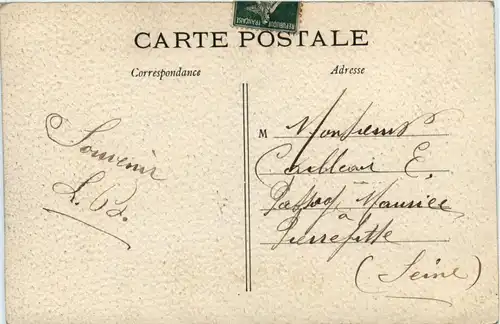 RÉPUBLIQUE FRANÇAISE
CARTE POSTALE
Correspondance
Adresse
Souvenir
L. B.
M Monsieur
E.
Maurice
à
Pierrefitte
(Seine)